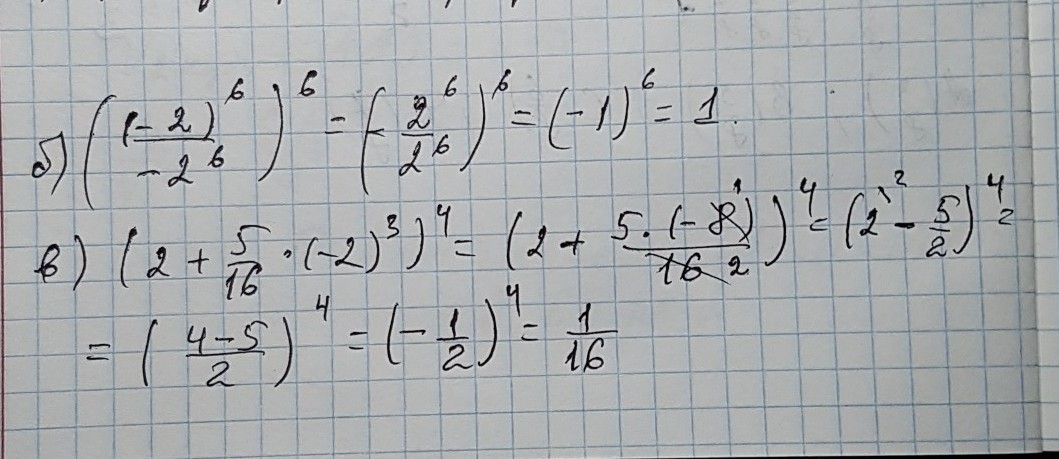 б) ((-2)^6 / -2^6)^6 = (- 2^6 / 2^6)^6 = (-1)^6 = 1.
в) (2 + 5/16 · (-2)^3)^4 = (2 + 5 · (-8) / 16 2)^4 = (2 - 5/2)^4 =
= (4-5 / 2)^4 = (- 1/2)^4 = 1/16